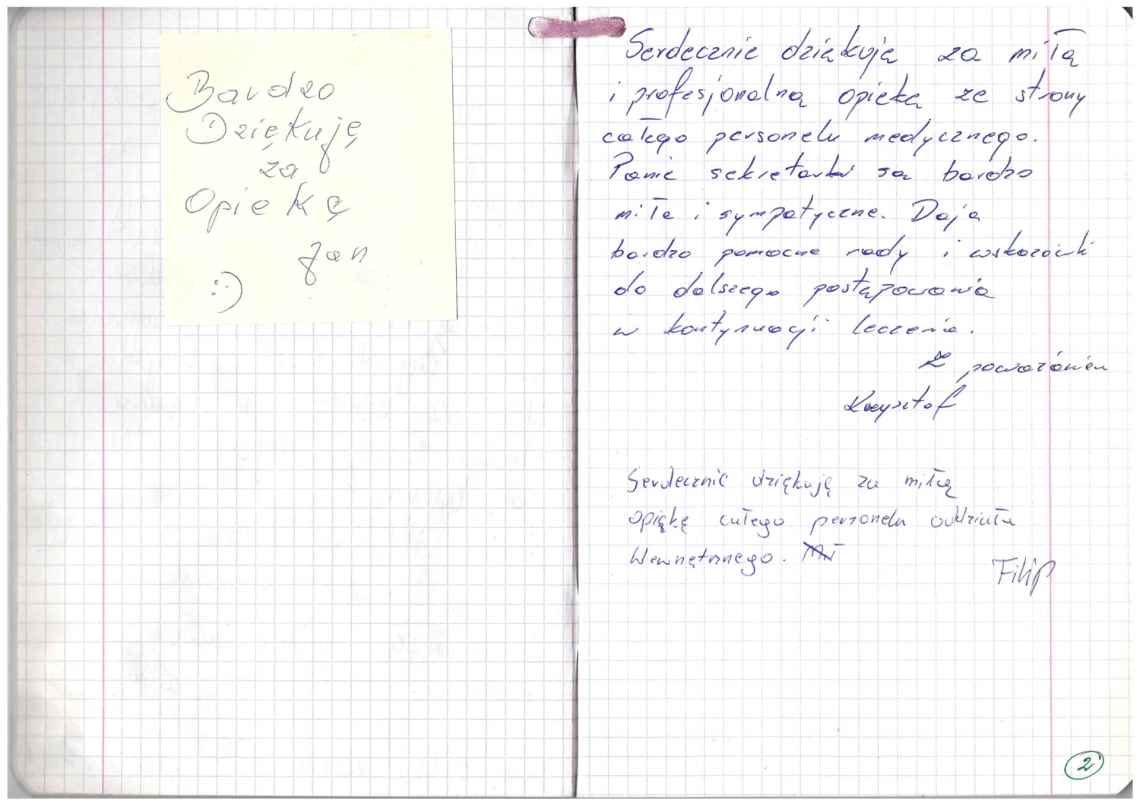 Bardzo
Dziękuję
za
Opiekę
Jan
:-)
Serdecznie dziękuję za miłą
i profesjonalną opiekę ze strony
całego personelu medycznego.
Panie sekretarki są bardzo
miłe i sympatyczne. Dają
bardzo pomocne rady i wskazówki
do dalszego postępowania
w kontynuacji leczenia.
Z poważaniem
Krzysztof
Serdecznie dziękuję za miłą
opiękę całego personelu oddziału
Wewnętrznego.
Filip
2